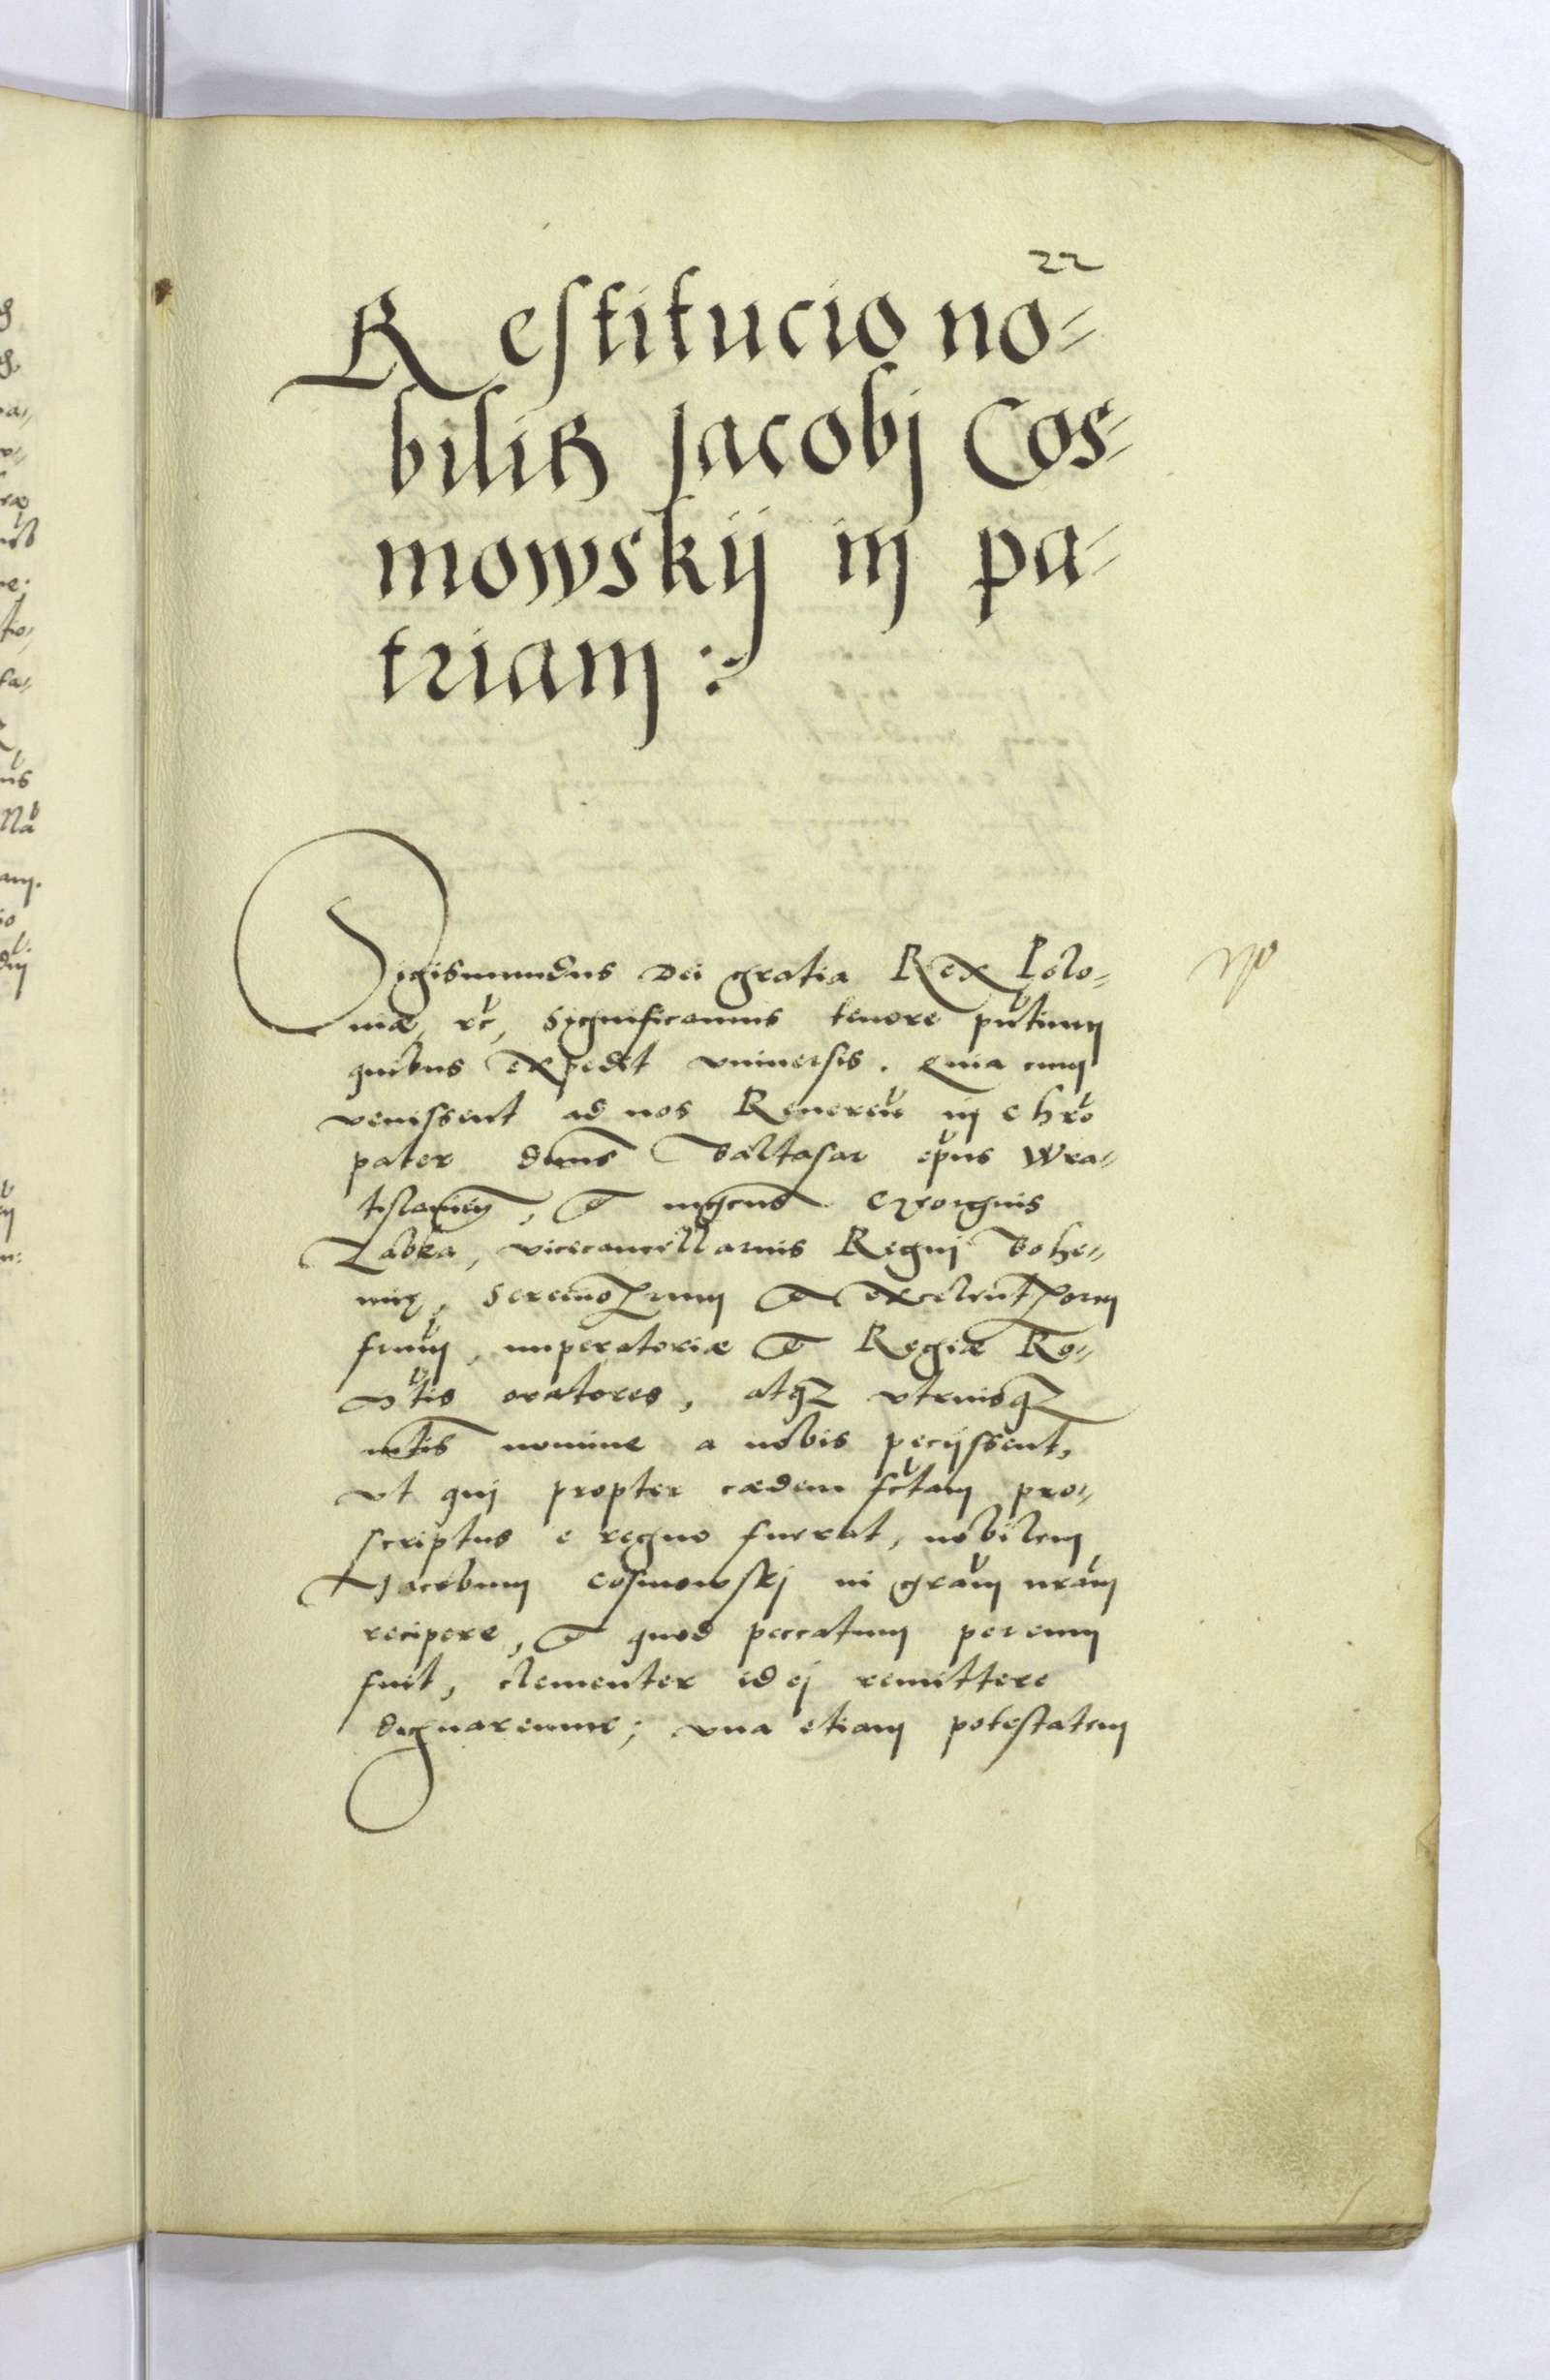 22
Restitucio no=
bilis Jacobj Cos=
mowskij in pa=
triam :~
Sigismundus Dei gratia Rex Polo=
niæ, &c, Significamus tenore pntium
quibus expedit vniuersis. Quia cum
venissent ad nos Reueren in Chro
pater dnus Baltasar epus Wra=
tislauien, et mgcus Georgius
Zabka, vicecancellarius Regni Bohe=
mię, Serenorum et excellentorum
frum, imperatoriæ et Regiæ Ro=
mtis oratores, atq vtriusq
mtis nomine a nobis pecijssent,
vt qui propter cædem fctam pro=
scriptus e regno fuerat, nobilem
Jacobum Cosmowskj in gram nram
recipere, et quod peccatum per eum
fuit, clementer id ej remittere
dignaremur; vna etiam potestatem